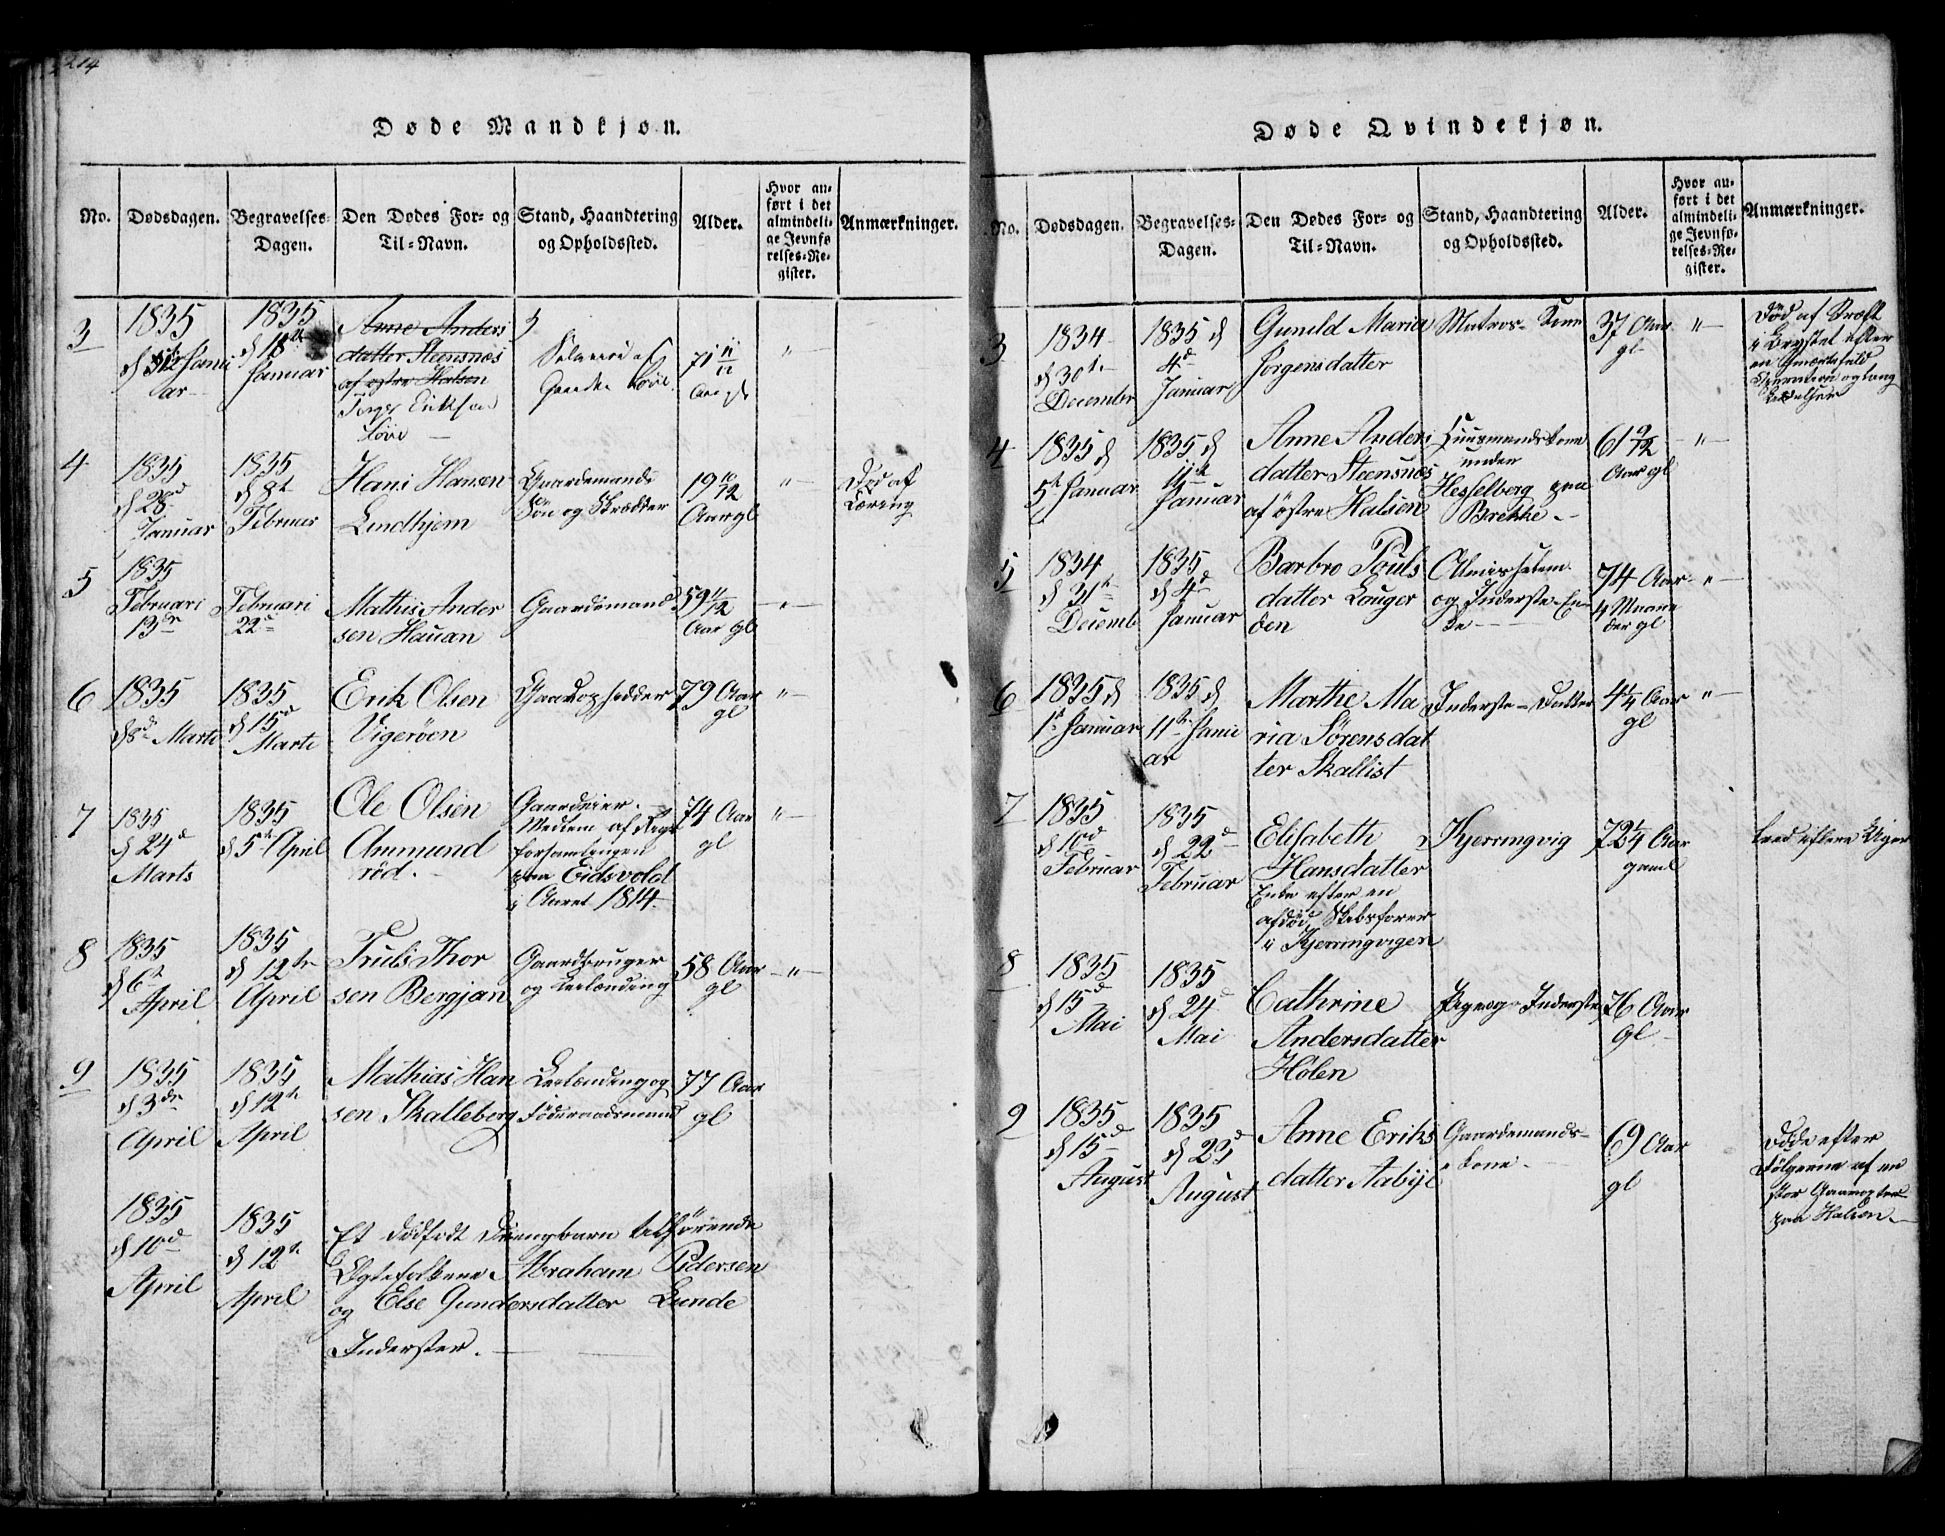 214
Døde Mandkjøn.
No.
Dødsdagen.
Begravelses-
Dagen.
Den Dødes For- og
Til-Navn.
Stand, Haandtering
og Opholdssted.
Alder.
Hvor an-
ført i det
almindeli-
ge Jevnfø
relses-Re-
gister.
Anmærkninger.
3
1835
Janu
ar
1835
d 18de
Januar
Anne Anders
datter Steensnæs
af østre Halsen
Eriksen
71 11/12
Aar gl
"
4
1835
d 28de
Januar
1835
d 8de
Februar
Hans Hansen
Lindhjem
Gaardmands
Søn og Skrædder
19 10/12
Aar gl
"
Død af
Tæring
5
1835
Februari
13de
Februari
22de
Mathis Ander
sen Hauan
Gaardmand
59 11/12
Aar gl
"
6
1835
d 8de Marti
1835
d 15de
Marti
Erik Olsen
Vigerøen
Gaardopsidder
79 Aar
gl
"
7
1835
d 24de
Marts
1835
d 5te April
Ole Olsen
Ammund
rød.
Gaardeier.
Medlem af Rigs
forsamlingen
paa Eidsvold
i Aaret 1814.
74 Aar
gl
"
8
1835
d 6te
April
1835
d 12te
April
Truls Thor
sen Bergjan
Gaardbruger
og Leilænding
58 Aar
gl
"
9
1835
d 3die
April
1835
d 12te
April
Mathias Han
sen Skalleberg
Leilænding og
Føderaadsmand
77 Aar
gl
1835
d 10de
April
1835
d 12te
April
Et dødfødt Drengebarn tilhørende
Ægtefolkene Abraham Pedersen
og Else Gundersdatter Lunde
Inderster.
Døde Qvindekjøn.
No.
Dødsdagen.
Begravelses-
Dagen.
Den Dødes For- og
Til-Navn.
Stand, Haandtering
og Opholdssted.
Alder.
Hvor an-
ført i det
almindeli-
ge Jevnfø-
relses-Re-
gister.
Anmærkninger.
3
1834
d 30te
December
1835 d
4de
Januar
Gunild Maria
Jørgensdatter
Matros-Kone
37 Aar
gl
"
Død af Kræft
i Brystet efter
en smertefuld
Operation og lang
Lidelser
4
1835 d
5te Januar
1835 d
11te
Januar
Anne Anders
datter Steensnæs
af østre Halsen
Huusmandskone
under
Hesselberg paa
Brekke.
61 9/12
Aar gl
"
5
1834
d 31te
Decemb
1835
d 4de
Januar
Barbro Pouls
datter Lauger
den
Almisselem
og Inderste-En-
ke
74 Aar
4 Maane
der gl
"
6
1835 d
1te Januar
1835 d
11te Janu
ar
Marthe Ma
ria Sørensdat
ter Skallist
Inderste-Datter
4 1/4 Aar
gl
"
7
1835
d 10de
Februar
1835
d 22de
Februar
Elisabeth
Hansdatter
Enke efter en
afdød Skibsfører
i Kjerringvigen
Kjerringvig
72 1/4 Aar
gaml
8
1835
d 15de
Mai
1835
d 24de
Mai
Cathrine
Andersdatter
Hølen
Pige og Inderste
76 Aar
gl
9
1835
d 15de
August
1835
d 23de
August
Anne Eriks
datter Aabye
Gaardmands-
kone.
69 Aar
gl
Døde efter
Følgerne af en
stor
paa Halsen.